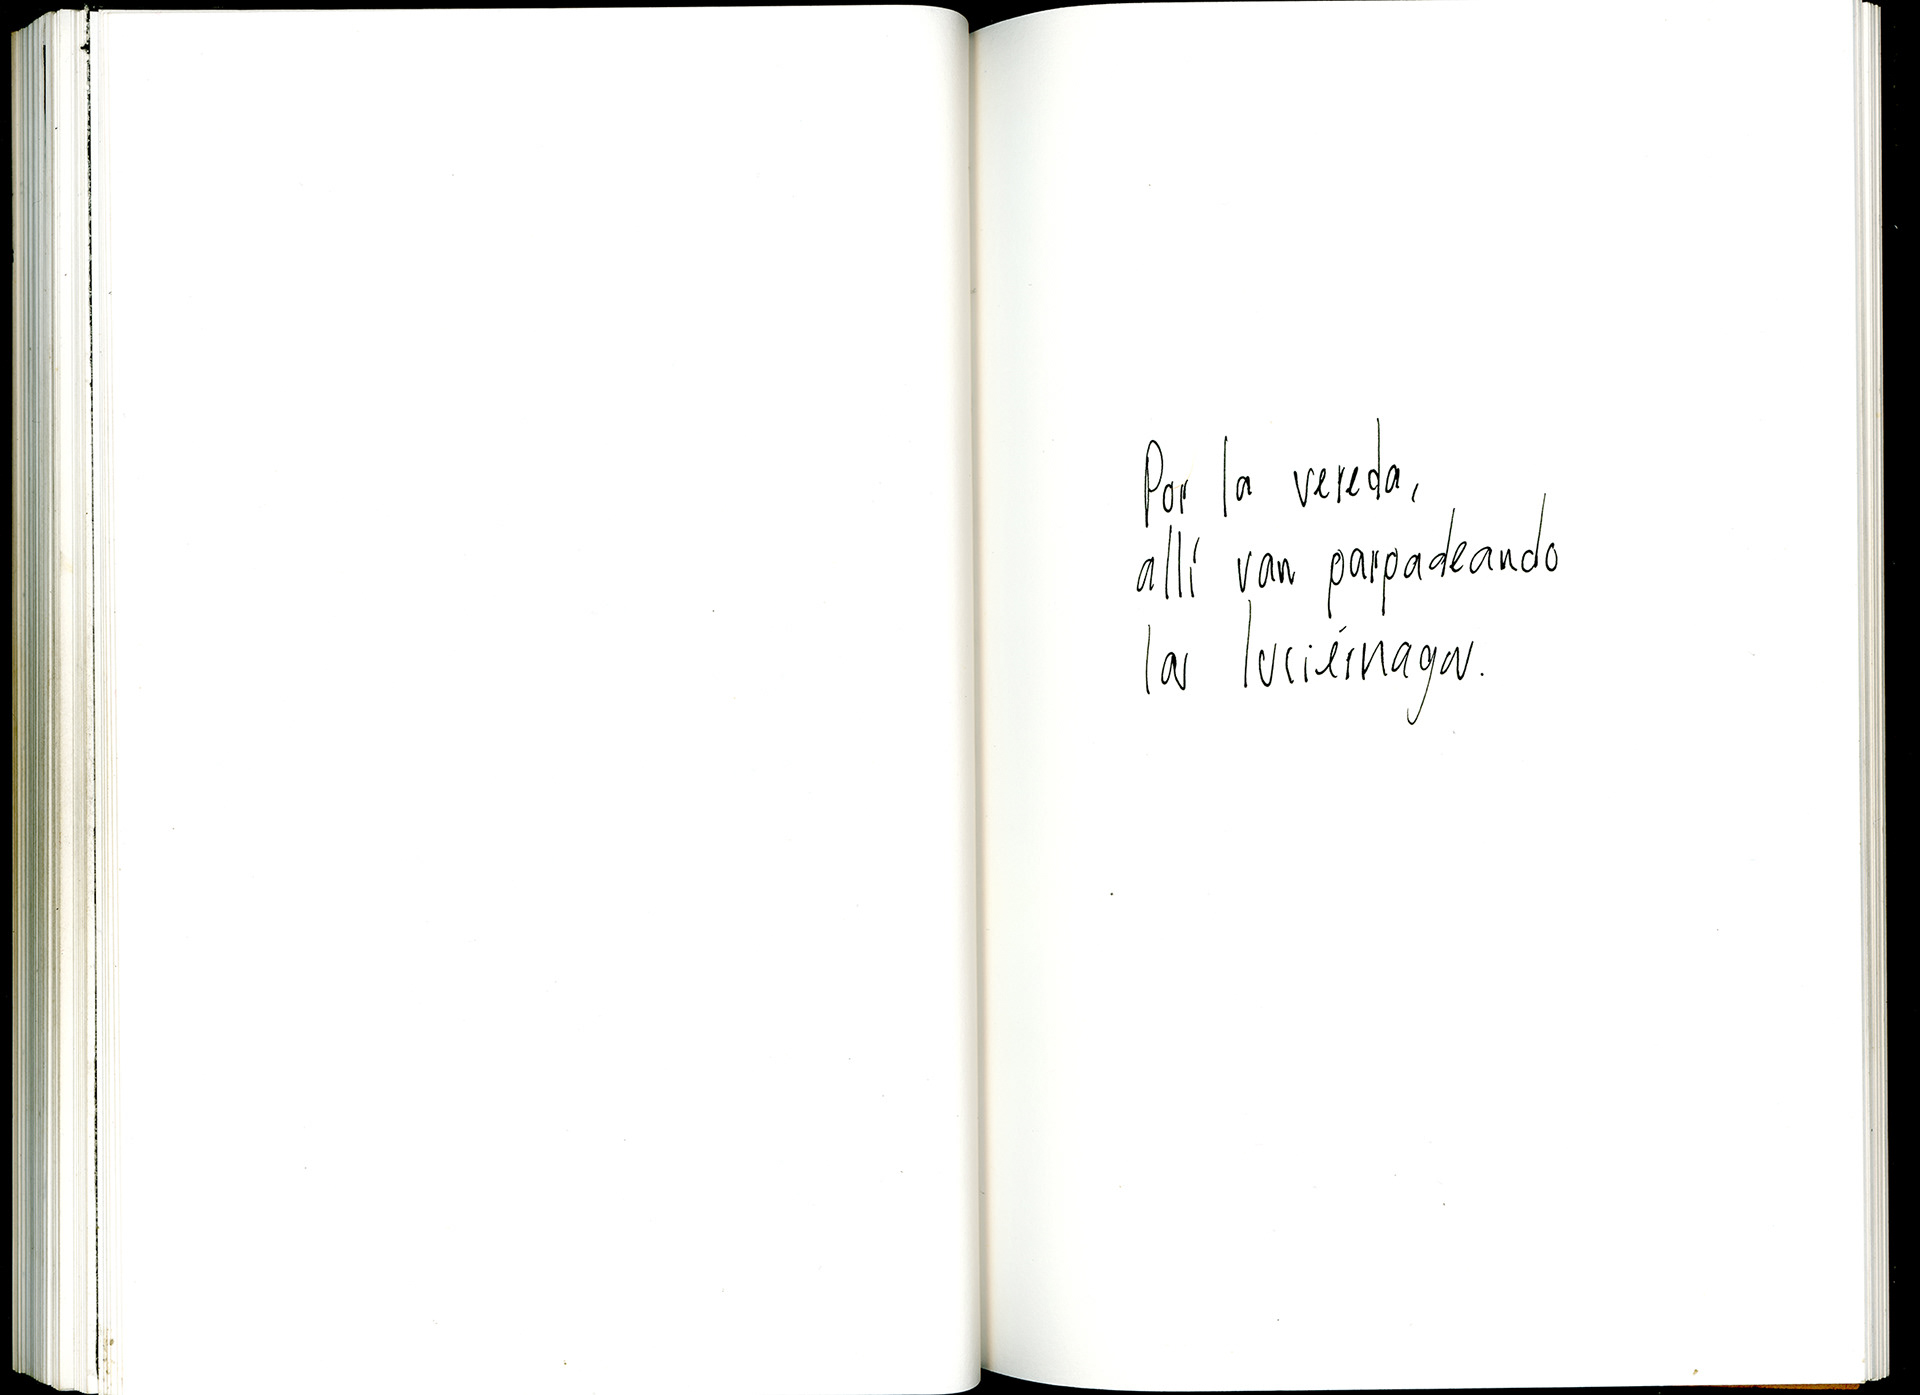 Por la vereda,
allí van parpadeando
las luciérnagas.